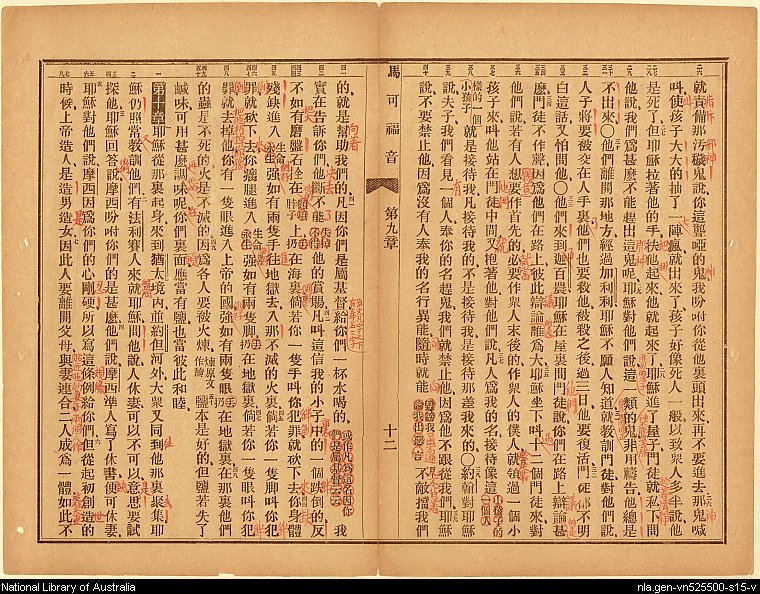 就責備那汚穢鬼說你這聾啞的鬼我吩咐你從他裏頭出來再不要進去那鬼喊
叫使孩子大大的抽了一陣瘋就出來了孩子好像死人一般以致衆人多半說他
是死了但耶穌拉著他的手扶他起來他就起來了耶穌進了屋子門徒就私下問
他說我們爲甚麽不能趕出這鬼呢耶穌對他們說這一類的鬼非用禱告他總是
不出來〇他們離開那地方經過加利利耶穌不願人知道就敎訓門徒對他們說
人子將要被交在人手裏他們也要殺他被殺之後過三日他要復活門徒都不明
白這話又怕問他〇他們來到迦百農耶穌在屋裏問門徒說你們在路上辯論甚
麽門徒不作聲因爲他們在路上彼此辯論誰爲大耶穌坐下叫十二個門徒來對
他們說若有人想要作首先的必要作衆人末後的作衆人的僕人就領過一個小
孩子來叫他站在門徒中間又抱著他對他們說凡人爲我的名接待像這小孩子的
樣的一個小孩子就是接待我凡接待我的不是接待我是接待那差我來的〇約翰對耶穌
說夫子我們看見一個人奉你的名趕鬼我們就禁止他因爲他不跟從我們耶穌
說不要禁止他因爲沒有人奉我的名行異能隨時就能 不敵擋我們
馬可福音 第九章 十二
的就是幫助我們的凡因你們是屬基督給你們一杯水喝的 我
實在告訴你們他斷不能不得他的賞賜凡叫這信我的小子中的一個跌倒的反
不如有磨盤石拴在頸項上扔在海裏倘若你一隻手叫你犯罪就砍下去你身體
殘缺進入永生强如有兩隻手往地獄去入那不滅的火裏倘若你一隻脚叫你犯
罪就砍下去你瘸腿進入永生强如有兩隻脚扔在地獄裏倘若你一隻眼叫你犯
罪就去掉他你有一隻眼進入上帝的國强如有兩隻眼扔在地獄裏在那裏他們
的蟲是不死的火是不滅的因爲各人要被火煉 煉原文作醃 鹽本是好的但鹽若失了
鹹味可用甚麽調味呢你們裏面應當有鹽也當彼此和睦
第十章 耶穌從那裏起身來到猶太境內並約但河外大衆又同到他那裏聚集耶
穌仍照常敎訓他們有法利賽人來就耶穌問他說人休妻可以不可以意思要試
探他耶穌回答說摩西吩咐你們的是甚麽他們說摩西準人寫了休書便可休妻
耶穌對他們說摩西因爲你們的心剛硬所以寫這條例給你們但從起初創造的
時候上帝造人是造男造女因此人要離開父母與妻連合二人成爲一體如此不
National Library of Australia
nla.gen-vn525500-s15-v